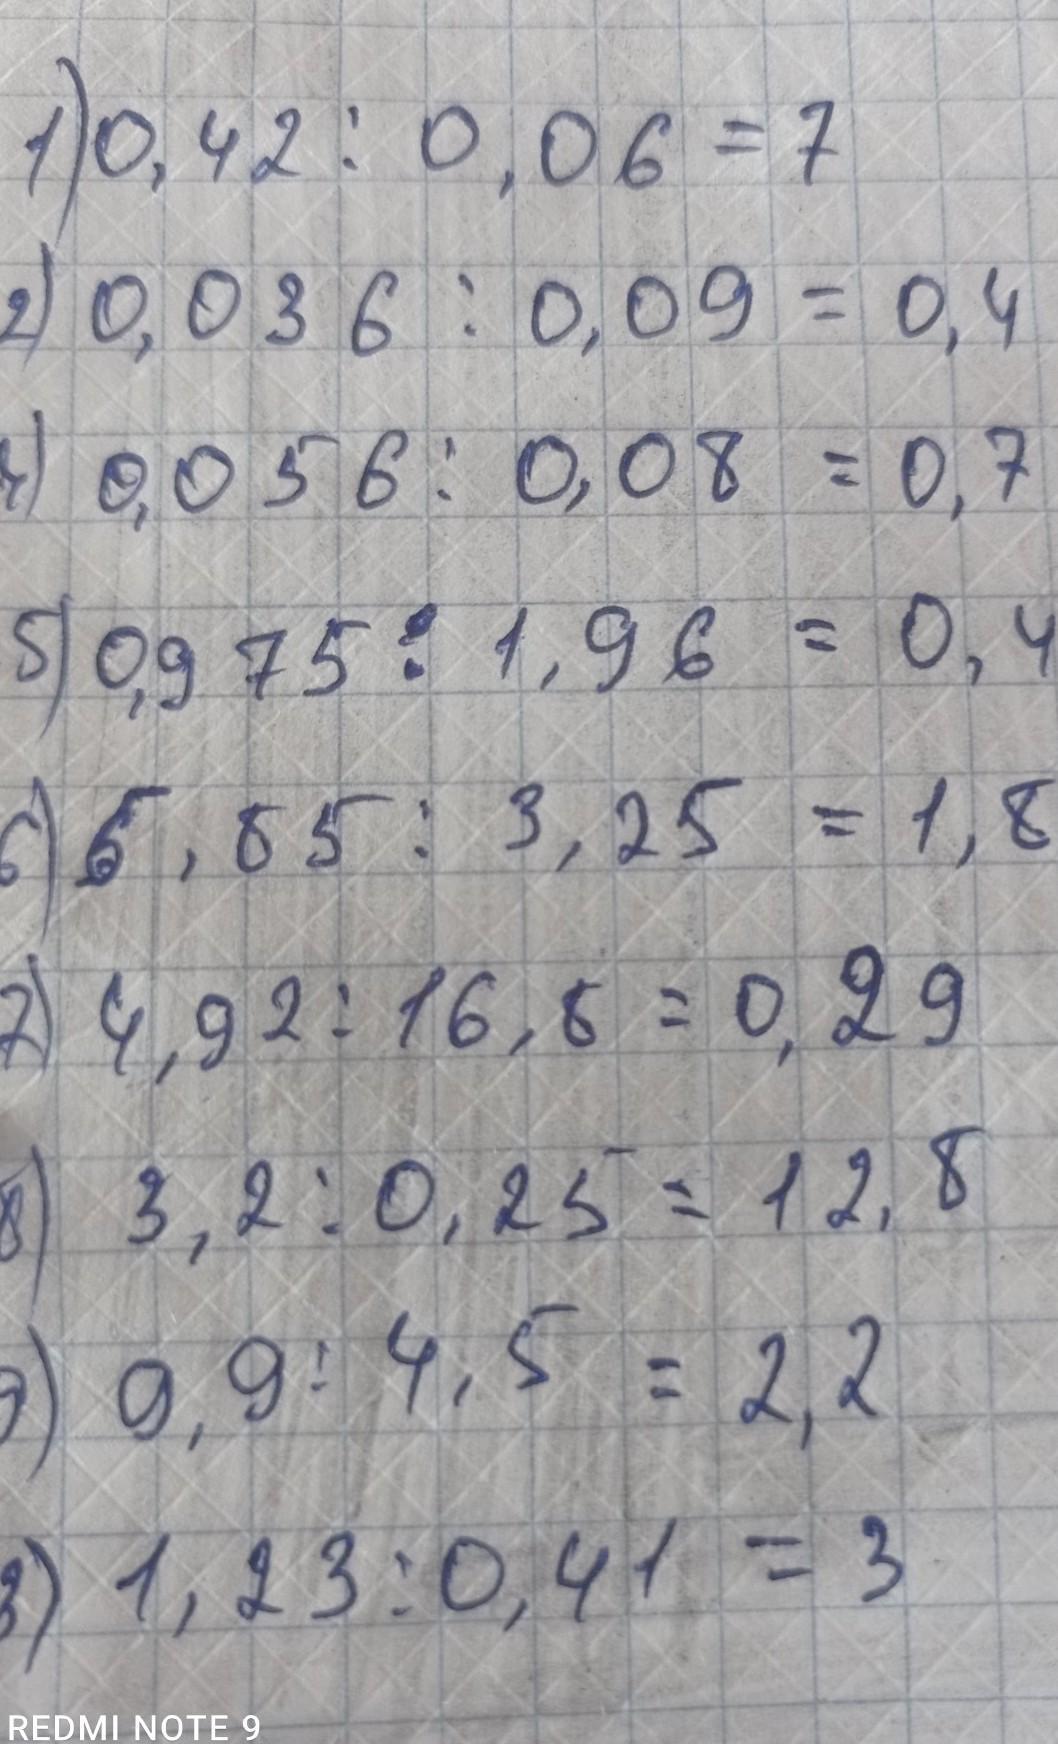 1) 0,42 : 0,06 = 7
2) 0,036 : 0,09 = 0,4
4) 0,056 : 0,08 = 0,7
5) 0,975 : 1,96 = 0,4
6) 5,85 : 3,25 = 1,8
7) 4,92 : 16,8 = 0,29
8) 3,2 : 0,25 = 12,8
9) 9,9 : 4,5 = 2,2
3) 1,23 : 0,41 = 3
REDMI NOTE 9